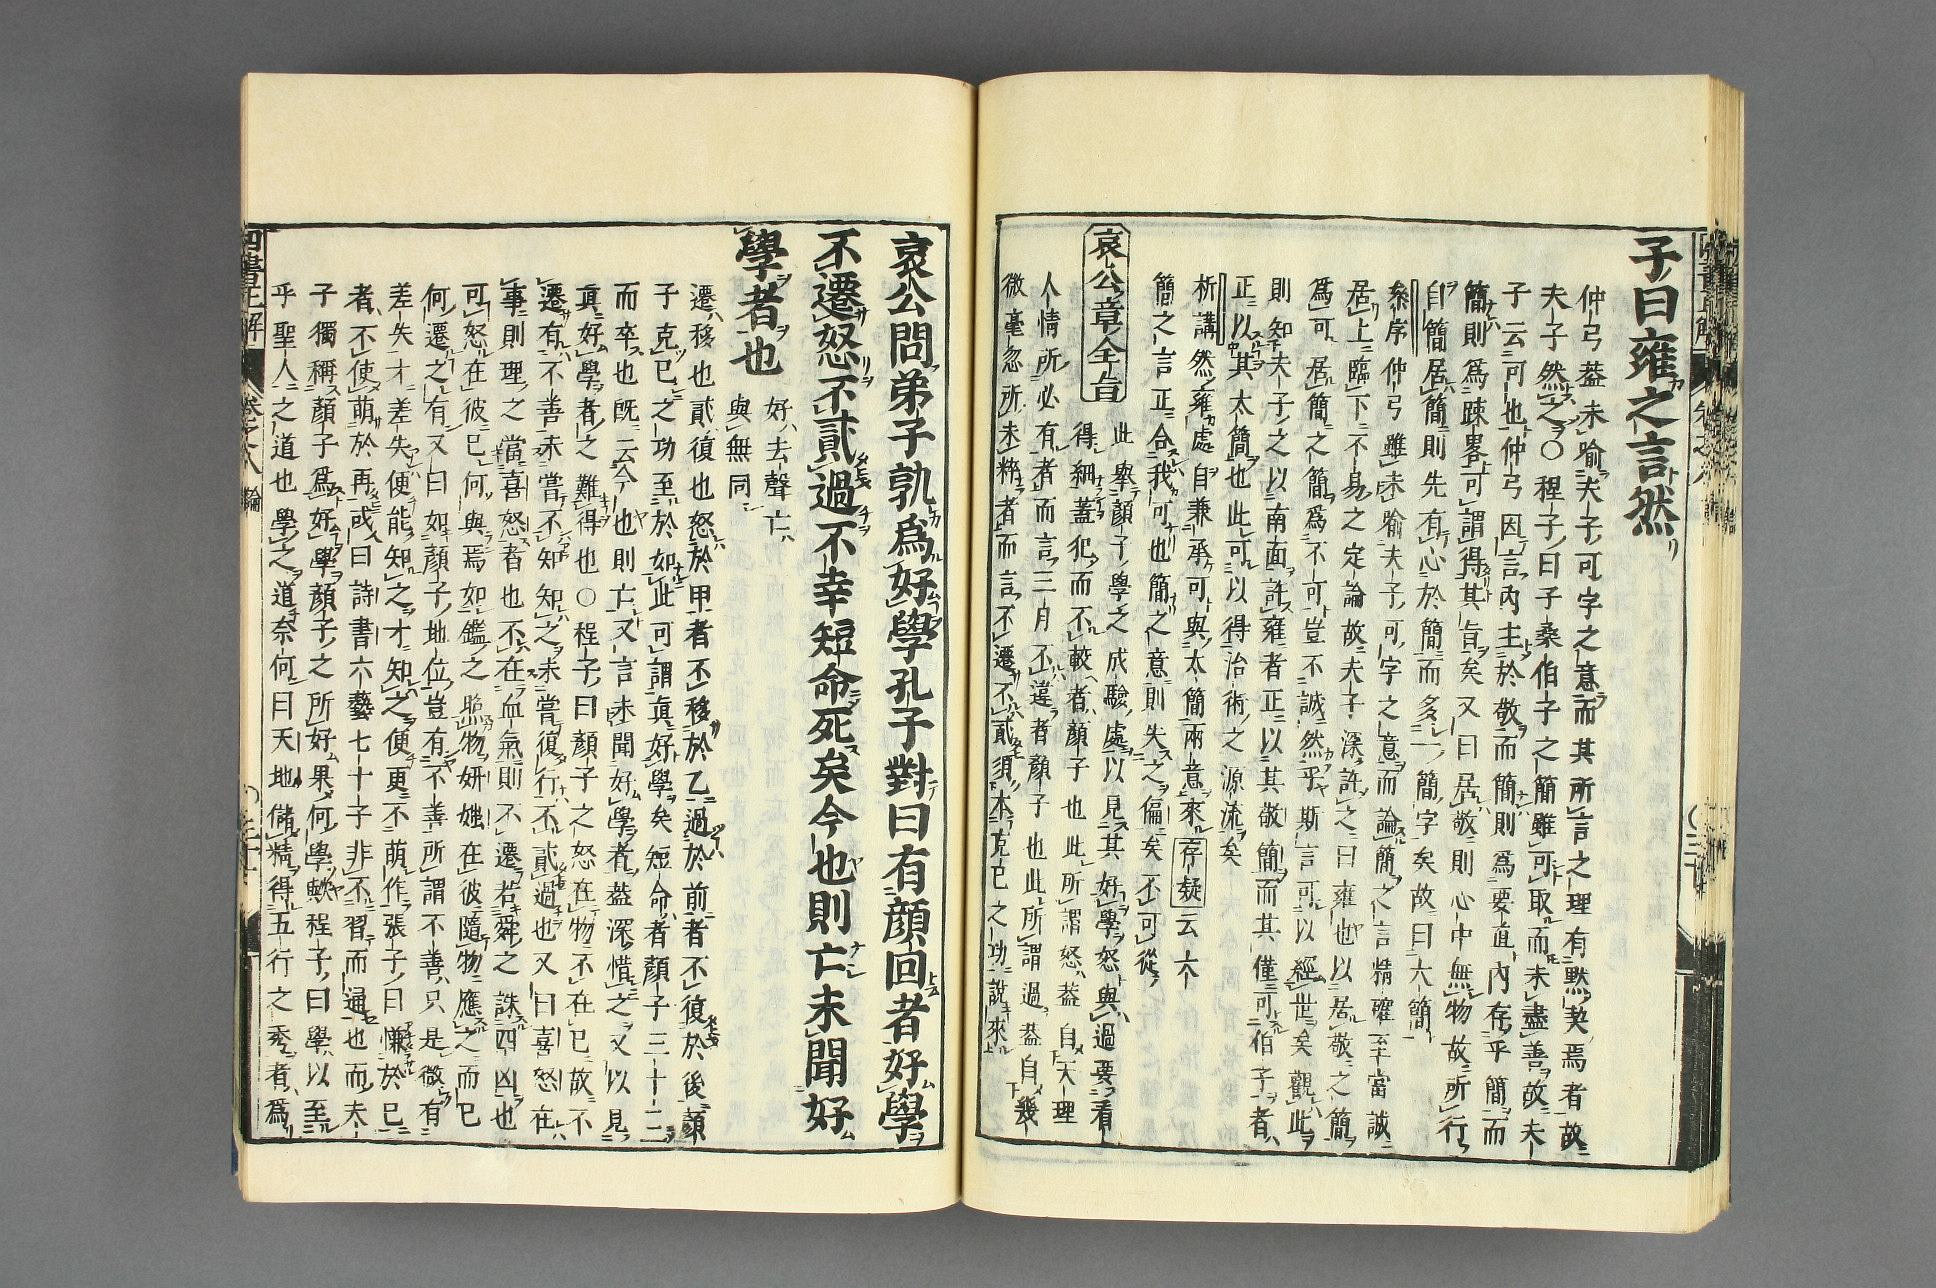 子曰雍之言然
仲弓蓋未喻夫子可字之意而其所言之理有默契焉者故
夫子然之○程子曰子桑伯子之簡雖可取而未盡善故夫
子云可也仲弓因言內主於敬而簡則為要直內存乎簡而
簡則為疎畧可謂得其旨矣又曰居敬則心中無物故所行
自簡居簡則先有心於簡而多一簡字矣故曰大簡
叅序仲弓雖未喻夫子可字之意而論簡之言精確至當誠
居上臨下不易之定論故夫子深許之曰雍也以居敬之簡
為可居簡之簡為不可豈不誠然乎斯言可以經世矣觀此
則知夫子之以南面許雍者正以其敬簡而其僅可伯子者
正以其太簡也此可以得治術之源流矣
析講然雍處自兼承可與太簡兩意來存疑云大
簡之言正合我可也簡之意則失之偏矣不可從
哀公章全旨
此舉顏子學之成驗處以見其好學怒與過要看
得細蓋犯而不較者顏子也此所謂怒蓋自天理
人情所必有者而言三月不違者顏子也此所謂過蓋自幾
微毫忽所未粹者而言不遷不貳須本克己之功說來
哀公問弟子孰為好學孔子對曰有顏回者好學
不遷怒不貳過不幸短命死矣今也則亡未聞好
學者也
好去聲亡
與無同
遷移也貳復也怒於甲者不移於乙過於前者不復於後顏
子克己之功至於如此可謂真好學矣短命者顏子三十二
而卒也既云今也則亡又言未聞好學者蓋深惜之又以見
真好學者之難得也○程子曰顏子之怒在物不在己故不
遷有不善未嘗不知知之未嘗復行不貳過也又曰喜怒在
事則理之當喜怒者也不在血氣則不遷若舜之誅四凶也
可怒在彼己何與焉如鑑之照物妍媸在彼隨物應之而已
何遷之有又曰如顏子地位豈有不善所謂不善只是微有
差失才差失便能知之才知之便更不萌作張子曰慊於己
者不使萌於再或曰詩書六藝七十子非不習而通也而夫
子獨稱顏子為好學顏子之所好果何學歟程子曰學以至
乎聖人之道也學之道奈何曰天地儲精得五行之秀者為
四書正解
卷之八
論